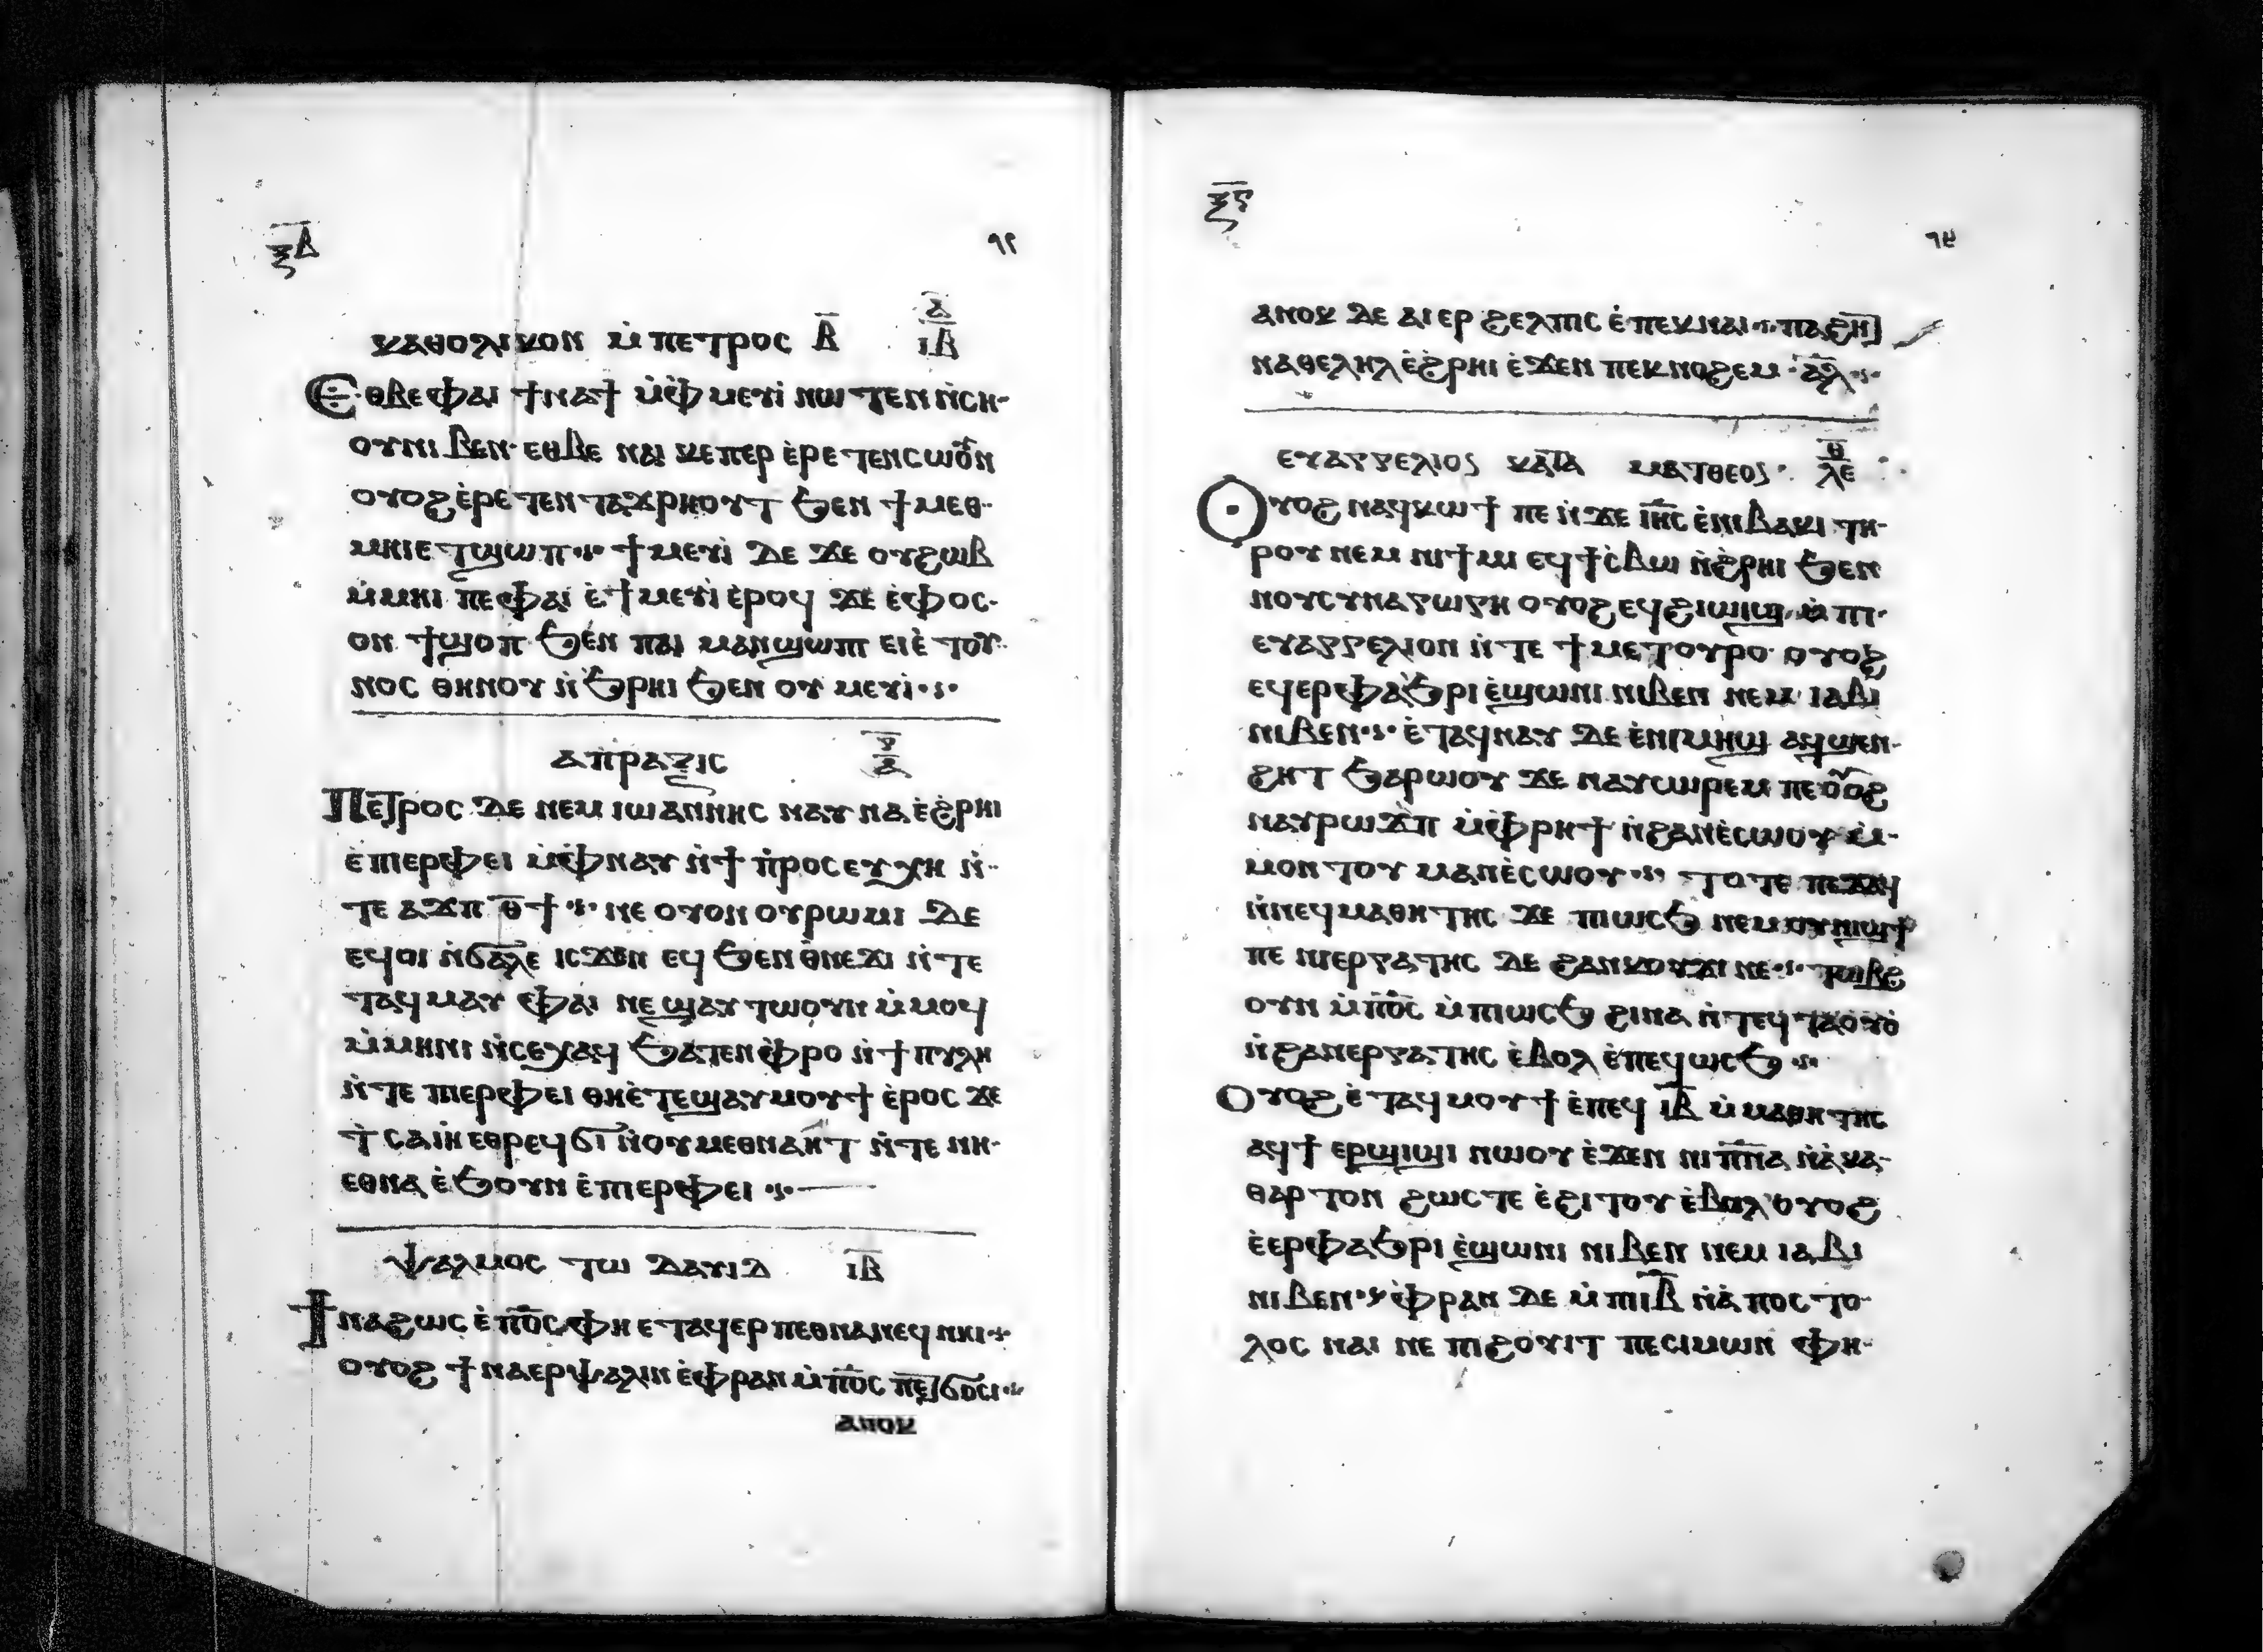 ⲝ̅ⲃ̅
ⲕⲁⲑⲟⲗⲓⲕⲟⲛ ⲙ̇ⲡⲉⲧⲣⲟⲥ ⲃ̅ ⲁ̅ ⲓ̅ⲃ̅
Ⲉⲑⲃⲉⲫⲁⲓ ϯⲛⲁϯ ⲙ̇ⲫ̇ⲙⲉⲩⲓ̇ ⲛⲱⲧⲉⲛ ⲛ̇ⲥⲏ-
ⲟⲩⲛⲓⲃⲉⲛ· ⲉⲑⲃⲉ ⲛⲁⲓ ⲕⲉⲡⲉⲣ ⲉ̇ⲣⲉⲧⲉⲛⲥⲱⲟⲩⲛ
ⲟⲩⲟϩ ⲉ̇ⲣⲉⲧⲉⲛ ⲧⲁϫⲣⲏⲟⲩⲧ ϧⲉⲛ ϯⲙⲉⲑ-
ⲙⲏⲓ ⲉⲧϣⲱⲡ ϯⲙⲉⲩⲓ̇ ⲇⲉ ϫⲉ ⲟⲩϩⲱⲃ
ⲙ̇ⲙⲏⲓ ⲡⲉ ⲫⲁⲓ ⲉ̇ϯⲙⲉⲩⲓ̇ ⲉ̇ⲣⲟϥ ϫⲉ ⲉ̇ⲫⲟⲥ-
ⲟⲛ ϯϣⲟⲡ ϧⲉⲛ ⲡⲁⲓ ⲙⲁⲛϣⲱⲡⲓ ⲉⲓⲉ̇ⲧⲟⲩ-
ⲛⲟⲥ ⲑⲏⲛⲟⲩ ⲛ̇ϧⲣⲏⲓ ϧⲉⲛ ⲟⲩ ⲙⲉⲩⲓ̇
ⲁⲡⲣⲁⲝⲓⲥ ⲅ̅ ⲁ̅
Ⲡⲉⲧⲣⲟⲥ ⲇⲉ ⲛⲉⲙ ⲓⲱⲁⲛⲛⲏⲥ ⲛⲁⲩⲛⲁ ⲉ̇ϩ̇ⲣⲏⲓ
ⲉ̇ⲡⲓⲉⲣⲫⲉⲓ ⲙ̇ⲫ̇ⲛⲁⲩ ⲛ̇ϯ ⲡ̇ⲣⲟⲥⲉⲩⲭⲏ ⲛ̇-
ⲧⲉ ⲁϫⲡ ⲑ̅ϯ ⲛⲉ ⲟⲩⲟⲛ ⲟⲩⲣⲱⲙⲓ ⲇⲉ
ⲉϥⲟⲓ ⲛ̇ϭⲁⲗⲉ ⲓⲥϫⲉⲛ ⲉϥϧⲉⲛ ⲑ̇ⲛⲉϫⲓ ⲛ̇ⲧⲉ
ⲧⲁϥⲙⲁⲩ ⲫⲁⲓ ⲛⲉϣⲁⲩⲧⲱⲟⲩⲛ ⲙ̇ⲙⲟϥ
ⲙ̇ⲙⲏⲛⲓ ⲛ̇ⲥⲉⲭⲁϥ ϧⲁⲧⲉⲛ ⲫ̇ⲣⲟ ⲛ̇ϯⲡⲩⲗⲏ
ⲛ̇ⲧⲉ ⲡⲓⲉⲣⲫⲉⲓ ⲑⲏⲉ̇ⲧⲉϣⲁⲩⲙⲟⲩϯ ⲉ̇ⲣⲟⲥ ϫⲉ
ϯ ⲥⲁⲓⲏ ⲉⲑⲣⲉϥϭⲓ ⲛ̇ⲟⲩⲙⲉⲑⲛⲁⲏⲧ ⲛ̇ⲧⲉ ⲛⲏ-
ⲉⲑⲛⲁ ⲉ̇ϧⲟⲩⲛ ⲉ̇ⲡⲓⲉⲣⲫⲉⲓ
ⲯⲁⲗⲙⲟⲥ ⲧⲱ ⲇⲁⲩⲓⲇ ⲓ̅ⲃ̅
Ϯⲛⲁϩⲱⲥ ⲉ̇ⲡ̅ⲟ̅ⲥ̅ ⲫⲏⲉⲧⲁϥⲉⲣ ⲡⲉⲑⲛⲁⲛⲉϥ ⲛⲏⲓ
ⲟⲩⲟϩ ϯⲛⲁⲉⲣⲯⲁⲗⲓⲛ ⲉ̇ⲫ̇ⲣⲁⲛ ⲙ̇ⲡ̅ⲟ̅ⲥ̅ ⲡⲉⲧϭⲟⲥⲓ
ⲁⲛⲟⲕ
ⲝ̅ⲅ̅
ⲁⲛⲟⲕ ⲇⲉ ⲁⲓⲉⲣϩⲉⲗⲡⲓⲥ ⲉ̇ⲡⲉⲕⲛⲁⲓ ⲡⲁϩⲏⲧ
ⲛⲁⲑⲉⲗⲏⲗ ⲉ̇ϩ̇ⲣⲏⲓ ⲉ̇ϫⲉⲛ ⲡⲉⲕⲛⲟϩⲉⲙ · ⲁ̅ⲗ̅
ⲉⲩⲁⲅⲅⲉⲗⲓⲟⲥ ⲕⲁⲧⲁ ⲙⲁⲧⲑⲉⲟⲥ · ⲑ̅ ⲗⲉ
Ⲟⲩⲟϩ ⲛⲁϥⲕⲱϯ ⲡⲉ ⲛ̇ϫⲉ ⲓⲏ̅ⲥ̅ ⲉ̇ⲛⲓⲃⲁⲕⲓ ⲧⲏ-
ⲣⲟⲩ ⲛⲉⲙ ⲛⲓϯⲙⲓ ⲉϥϯⲥ̇ⲃⲱ ⲛ̇ϩ̇ⲣⲏⲓ ϧⲉⲛ
ⲛⲟⲩⲥⲩⲛⲁⲅⲱⲅⲏ ⲟⲩⲟϩ ⲉϥϩⲓⲱⲓϣ ⲙ̇ⲡⲓ-
ⲉⲩⲁⲅⲅⲉⲗⲓⲟⲛ ⲛ̇ⲧⲉ ϯⲙⲉⲧⲟⲩⲣⲟ ⲟⲩⲟϩ
ⲉϥⲉⲣⲫⲁϧⲣⲓ ⲉ̇ϣⲱⲛⲓ ⲛⲓⲃⲉⲛ ⲛⲉⲙ ⲓⲁⲃⲓ
ⲛⲓⲃⲉⲛ ⲉ̇ⲧⲁϥⲛⲁⲩ ⲇⲉ ⲉ̇ⲛⲓⲙⲏϣ ⲁϥϣⲉⲛ-
ϩⲏⲧ ϧⲁⲣⲱⲟⲩ ϫⲉ ⲛⲁⲩⲥⲱⲣⲉⲙ ⲡⲉ ⲟⲩⲟϩ
ⲛⲁⲩⲣⲱϫⲡ ⲙ̇ⲫ̇ⲣⲏϯ ⲛ̇ϩⲁⲛⲉ̇ⲥⲱⲟⲩ ⲙ̇-
ⲙⲟⲛⲧⲟⲩ ⲙⲁⲛⲉ̇ⲥⲱⲟⲩ ⲧⲟⲧⲉ ⲡⲉϫⲁϥ
ⲛ̇ⲛⲉϥⲙⲁⲑⲏⲧⲏⲥ ϫⲉ ⲡⲓⲱⲥϧ ⲙⲉⲛ ⲟⲩⲛⲓϣϯ
ⲡⲉ ⲛⲓⲉⲣⲅⲁⲧⲏⲥ ⲇⲉ ϩⲁⲛⲕⲟⲩϫⲓ ⲛⲉ ⲧⲱⲃϩ
ⲟⲩⲛ ⲙ̇ⲡ̅ⲟ̅ⲥ̅ ⲙ̇ⲡⲓⲱⲥϧ ϩⲓⲛⲁ ⲛ̇ⲧⲉϥⲧⲁⲟⲩⲟ̇
ⲛ̇ϩⲁⲛⲉⲣⲅⲁⲧⲏⲥ ⲉ̇ⲃⲟⲗ ⲉ̇ⲡⲉϥⲱⲥϧ
Ⲟⲩⲟϩ ⲉ̇ⲧⲁϥⲙⲟⲩϯ ⲉ̇ⲡⲉϥ ⲓ̅ⲃ̅ ⲙ̇ⲙⲁⲑⲏⲧⲏⲥ
ⲁϥϯ ⲉⲣϣⲓϣⲓ ⲛⲱⲟⲩ ⲉ̇ϫⲉⲛ ⲛⲓⲡ̅ⲛ̅ⲁ̅ ⲛ̇ⲁ̇ⲕⲁ-
ⲑⲁⲣⲧⲟⲛ ϩⲱⲥⲧⲉ ⲉ̇ϩⲓⲧⲟⲩ ⲉ̇ⲃⲟⲗ ⲟⲩⲟϩ
ⲉ̇ⲉⲣⲫⲁϧⲣⲓ ⲉ̇ϣⲱⲛⲓ ⲛⲓⲃⲉⲛ ⲛⲉⲙ ⲓⲁⲃⲓ
ⲛⲓⲃⲉⲛ ⲫ̇ⲣⲁⲛ ⲇⲉ ⲙ̇ⲡⲓⲓ̅ⲃ̅ ⲛ̇ⲁ̇ⲡⲟⲥⲧⲟ-
ⲗⲟⲥ ⲛⲁⲓ ⲛⲉ ⲡⲓϩⲟⲩⲓⲧ ⲡⲉ ⲥⲓⲙⲱⲛ ⲫⲏ-